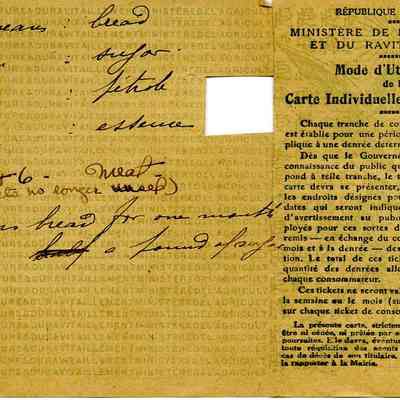 means bread
sugar
pétrole
essence
6 - Meat
no longer used))
bread for one month
a pound of sugar
RÉPUBLIQUE
MINISTÈRE DE
ET DU RAVIT
Mode d'Ut
de l
Carte Individuelle
Chaque tranche de co
est établie pour une pério
plique à une denrée déter
Dès que le Gouverne
connaissance du public qu
pond à telle tranche, le t
carte devra se présenter,
les endroits désignés pou
dates qui seront indiqué
d'avertissement au publi
ployés pour ces sortes d
remis — en échange du co
mois et à la denrée — des
tion. Le total de ces tic
quantité des denrées allo
chaque consommateur.
Ces tickets ne seront va
la semaine ou le mois (su
sur chaque ticket de conso
La présente carte, stricten
être ni cédée, ni prêtée par s
poursuites. Elle devra, éventue
toute réquisition des agents
cas de décès de son titulaire,
la rapporter à la Mairie.